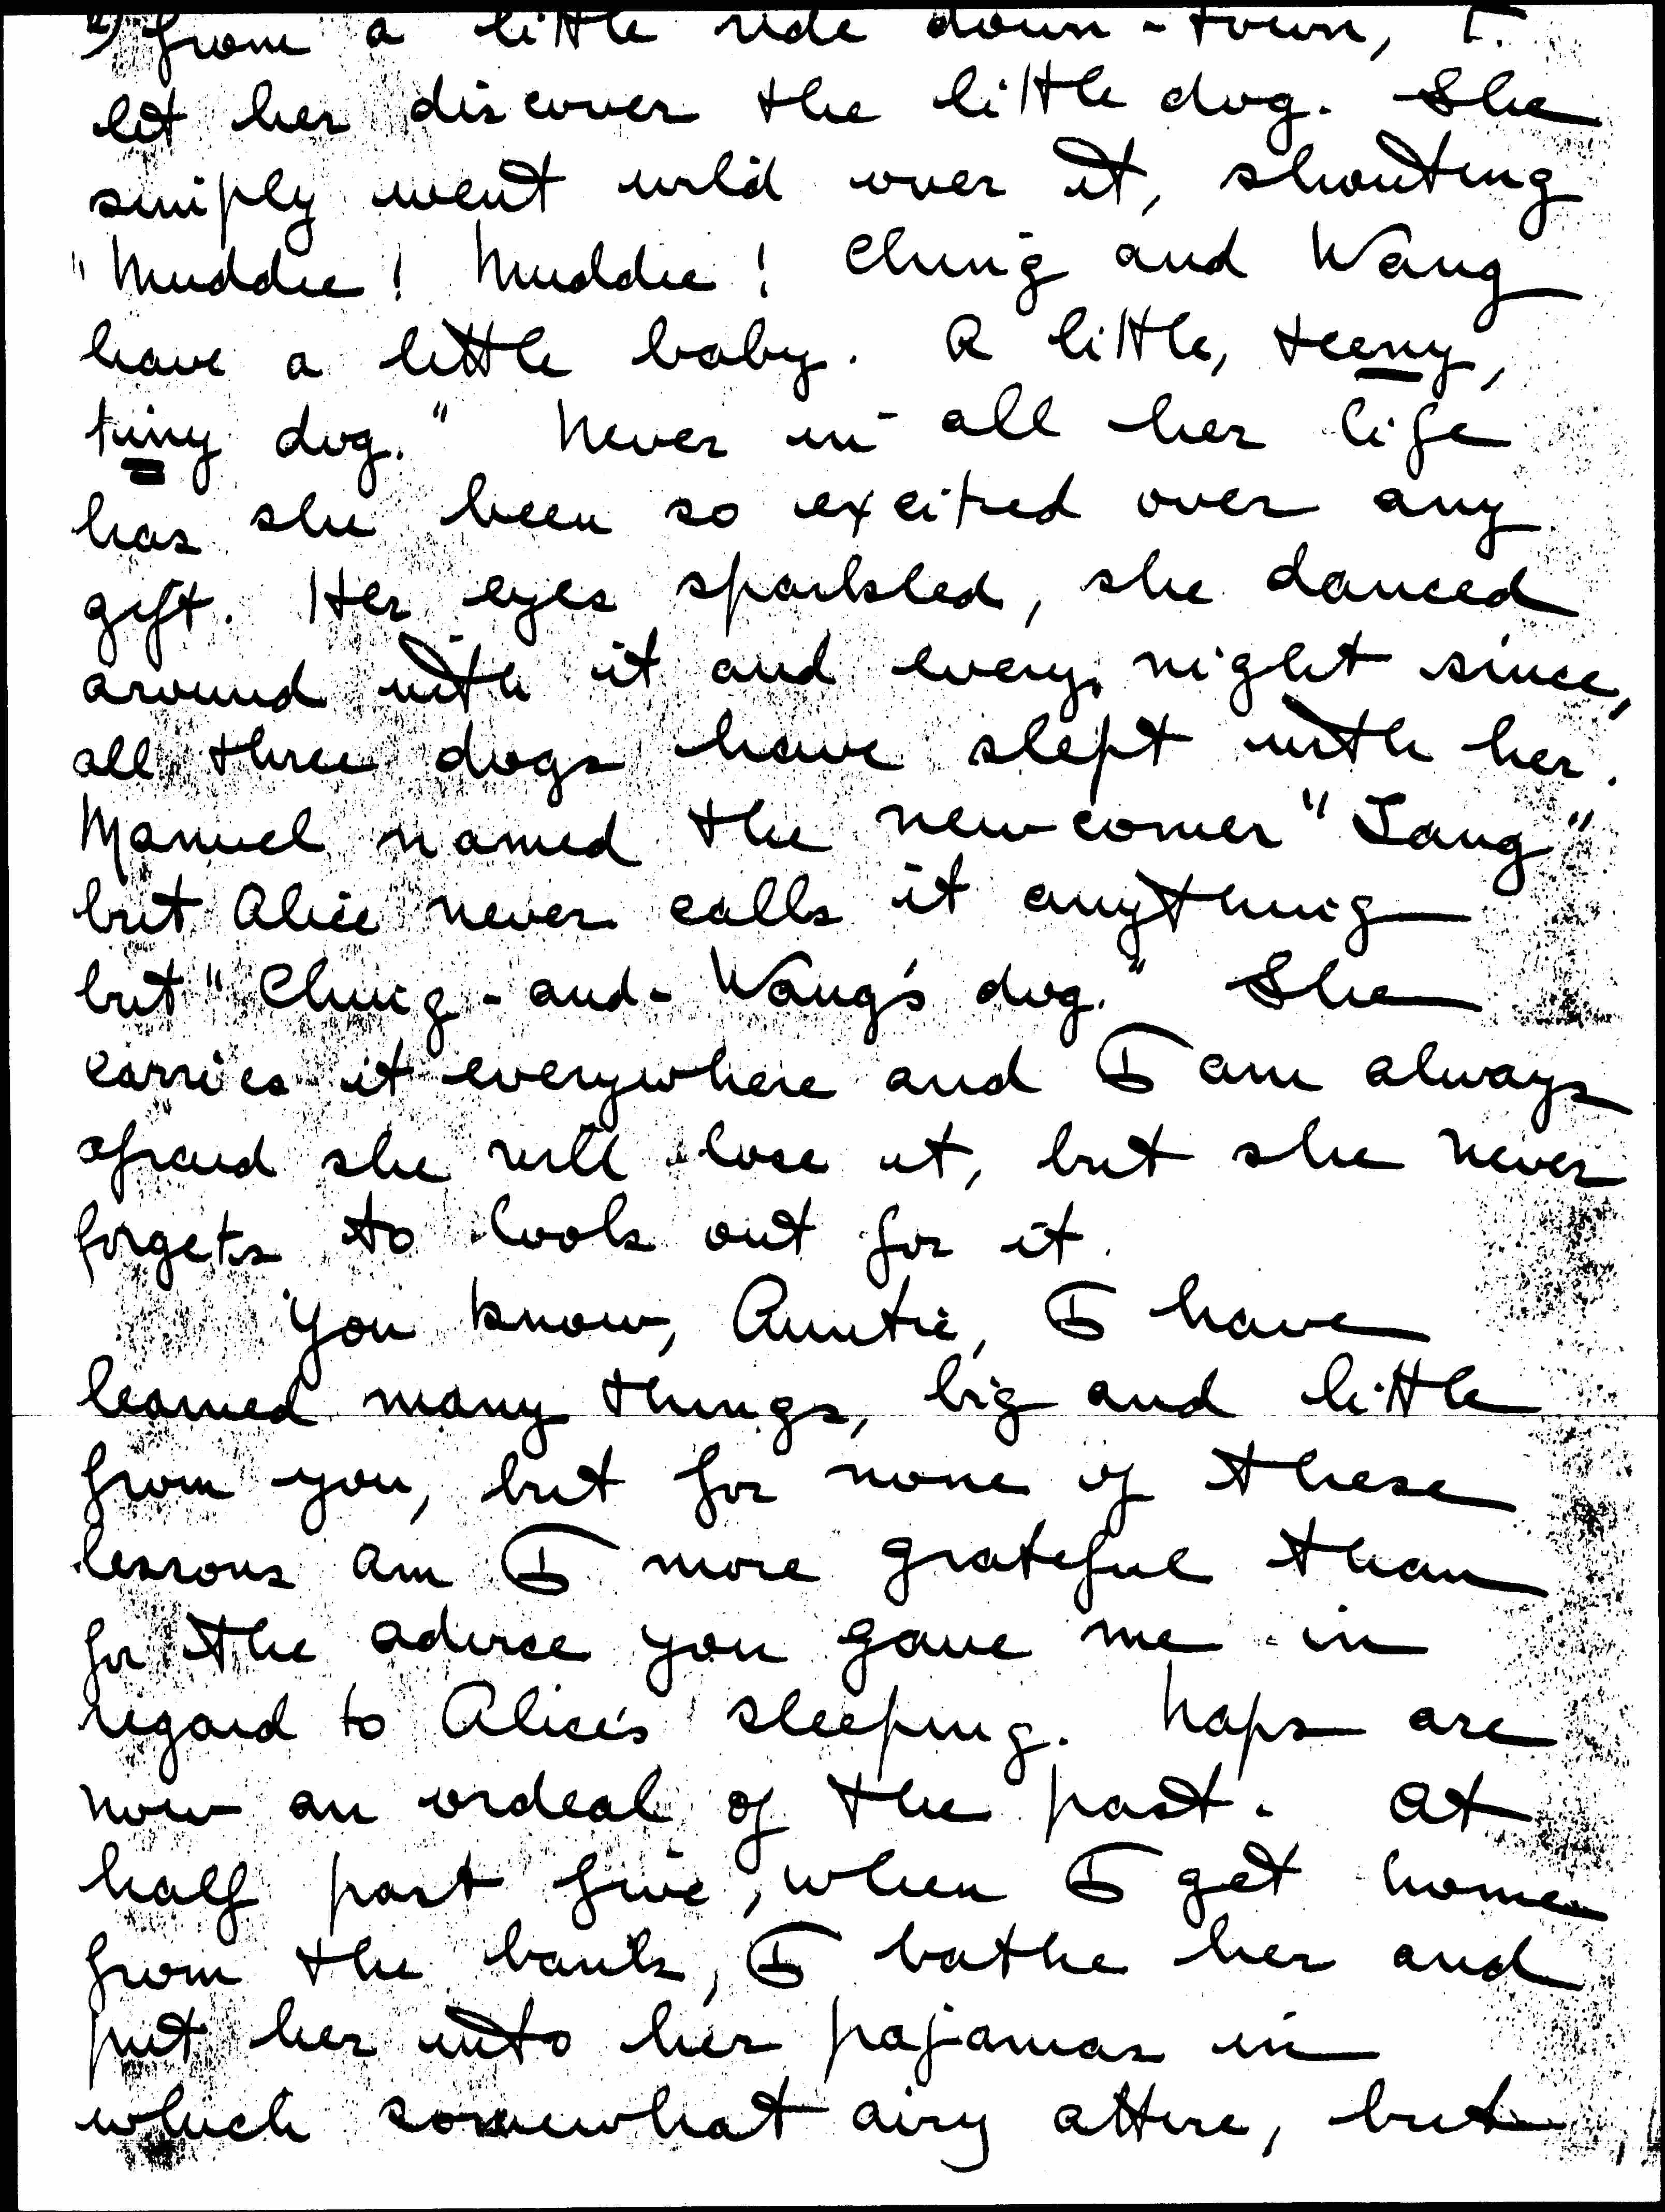 2) from a little ride down-town, I
let her discover the little dog. She
simply went wild over it, shouting
"Muddie! Muddie! Ching and Wang
have a little baby. A little, teeny,
tiny dog." Never in all her life
has she been so excited over any
gift. Her eyes sparkled, she danced
around with it and every night since,
all three dogs have slept with her.
Manuel named the new-comer "Tang"
but Alice never calls it anything
but "Ching-and-Wang's dog." She
carries it everywhere and I am always
afraid she will lose it, but she never
forgets to look out for it.
You know, Auntie, I have
learned many things, big and little
from you, but for none of these
lessons am I more grateful than
for the advice you gave me in
regard to Alice's sleeping. Naps are
now an ordeal of the past. At
half past five, when I get home
from the bank, I bathe her and
put her into her pajamas in
which somewhat airy attire, but